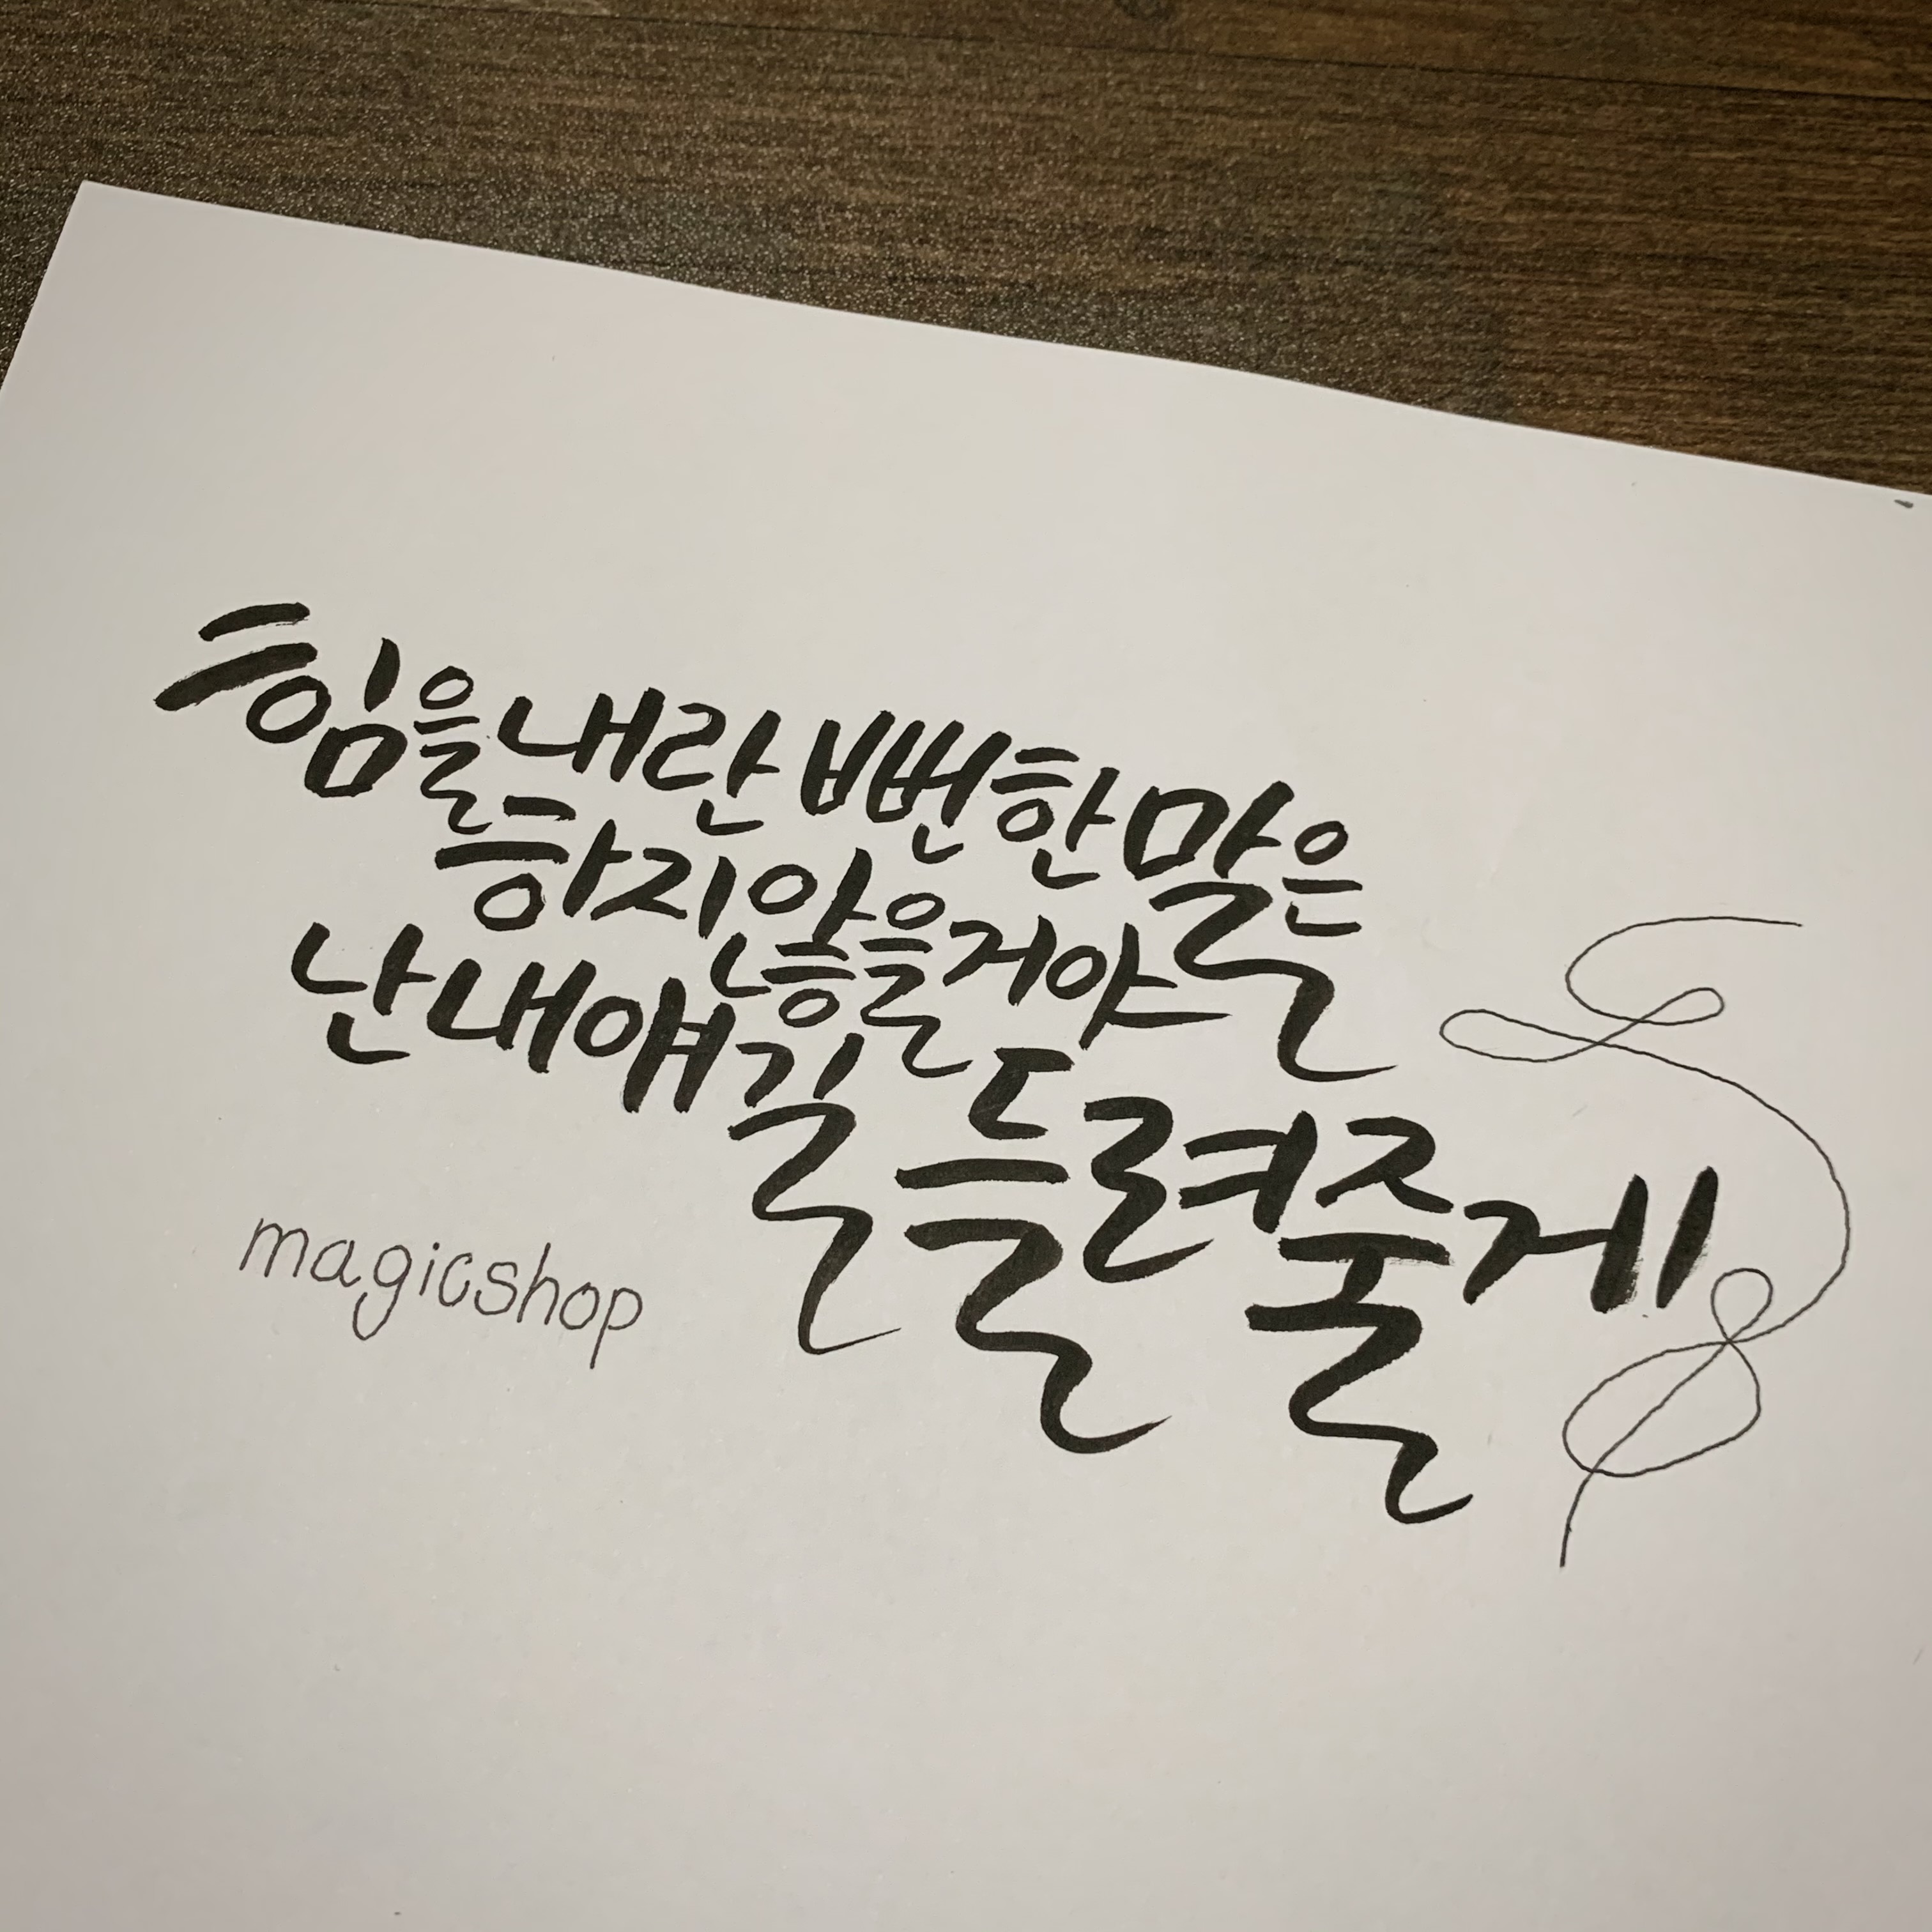 힘을 내란 뻔한 말은
하지 않을 거야
난 내 얘길 들려줄게
magicshop